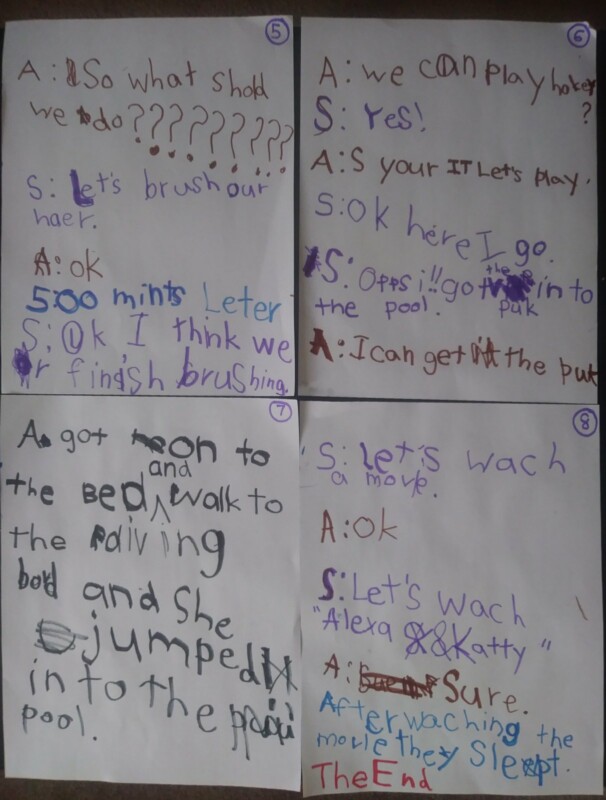 5
A: So what shold
we do?????????
S: Let's brush our
haer.
A: ok
5:00 mints Leter
S: Ok I thnk we
r finish brushing.
6
A: we can play hokey
?
S: Yes!
A: S your IT Let's play.
S: Ok here I go.
S: Opps i!! got the in to
the pool. puk
A: I can get the puk
7
A got on to
the BED and walk to
the diving
bord and She
jumped
in to the
pool.
8
S: Let's wach
a movie.
A: Ok
S: Let's wach
"Alexa & Katty"
A: Sure.
After waching the
movie they Slept.
The End